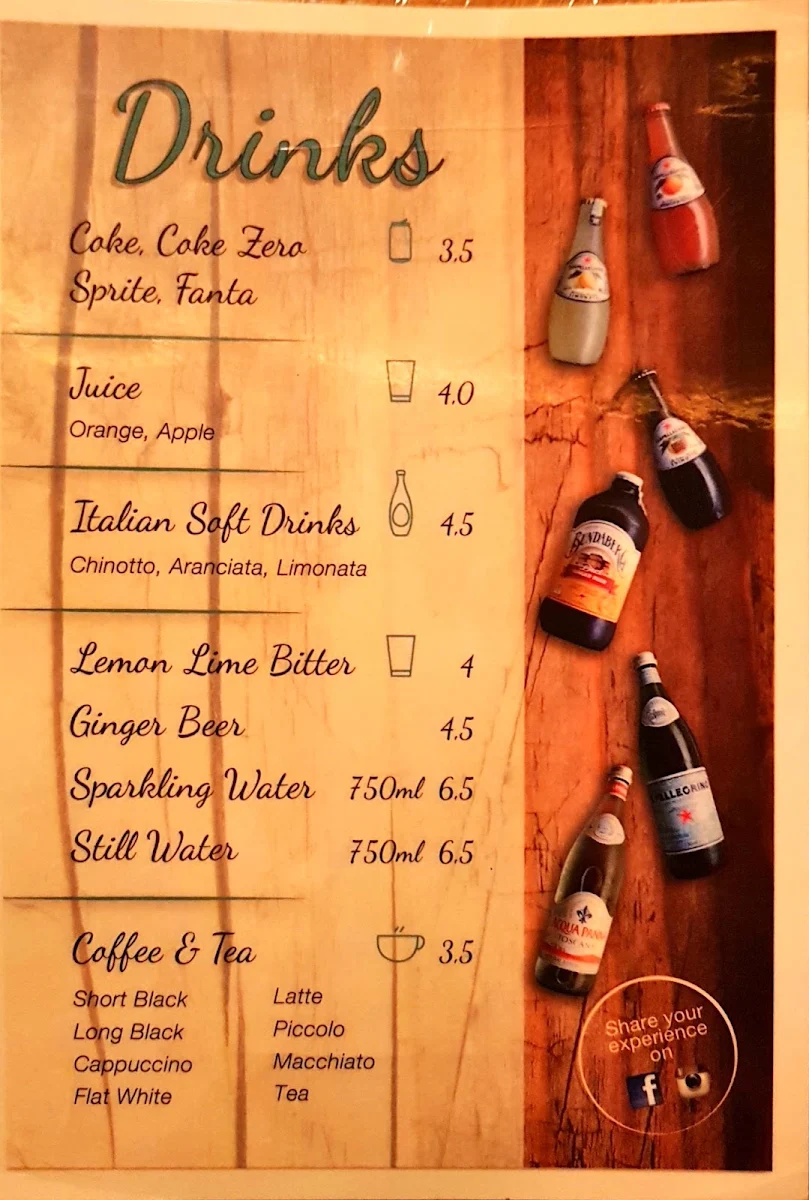 Drinks
Coke, Coke Zero 3.5
Sprite, Fanta
Juice 4.0
Orange, Apple
Italian Soft Drinks 4.5
Chinotto, Aranciata, Limonata
Lemon Lime Bitter 4
Ginger Beer 4.5
Sparkling Water 750ml 6.5
Still Water 750ml 6.5
Coffee & Tea 3.5
Short Black Latte
Long Black Piccolo
Cappuccino Macchiato
Flat White Tea
BUNDABERG
PELLEGRINO
ACQUA PANNA
TOSCANA
Share your
experience
on
f